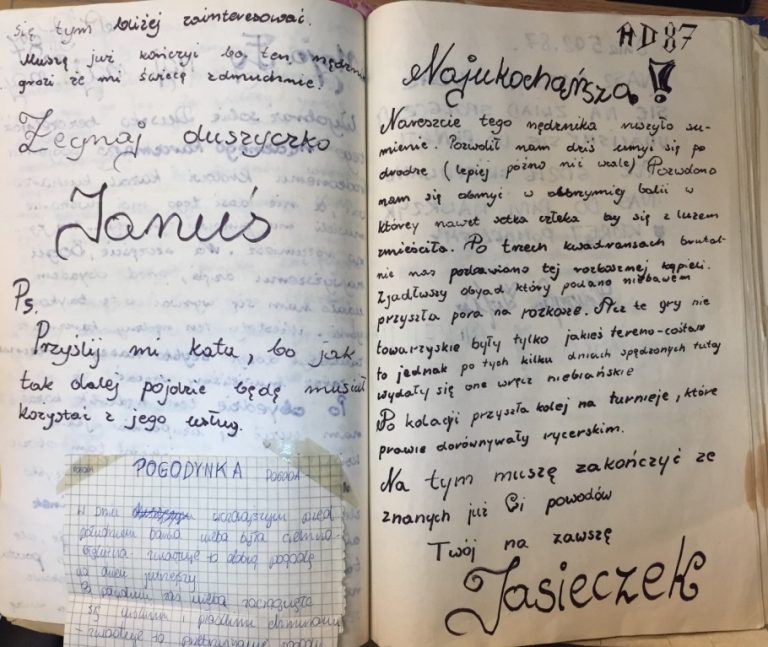 się tym bliżej zainteresować.
Muszę już kończyć bo ten nędznik
grozi że mi świecę zdmuchnie.
Żegnaj duszyczko
Januś
Ps.
Przyślij mi kata, bo jak
tak dalej pójdzie będę musiał
korzystać z jego usług.
POGODYNKA POGODA
W dniu wczorajszym przed
południem barwa nieba była ciemno
błękitna - zwiastuje to dobrą pogodę
na dzień jutrzejszy
Po południu zaś niebo zaciągnęło
się
- zwiastuje to pogody
AD 87
Najukochańsza!
Nareszcie tego nędznika ruszyło su-
mienie. Pozwolił nam dziś umyć się po
drodze (lepiej późno niż wcale) Pozwolono
nam się obmyć w olbrzymiej balii w
której nawet setka człeka by się z luzem
zmieściła. Po trzech kwadransach brutal-
nie nas pozbawiono tej rozkosznej kąpieli.
Zjadłwszy obyad który podano niebawem
przyszła pora na rozkosze. Acz te gry nie
towarzyskie były tylko jakieś tereno-cośtam
to jednak po tych kilku dniach spędzonych tutaj
wydały się one wręcz niebiańskie
Po kolacji przyszła kolej na turnieje, które
prawie dorównywały rycerskim.
Na tym muszę zakończyć ze
znanych już Ci powodów
Twój na zawszę
Jasieczek